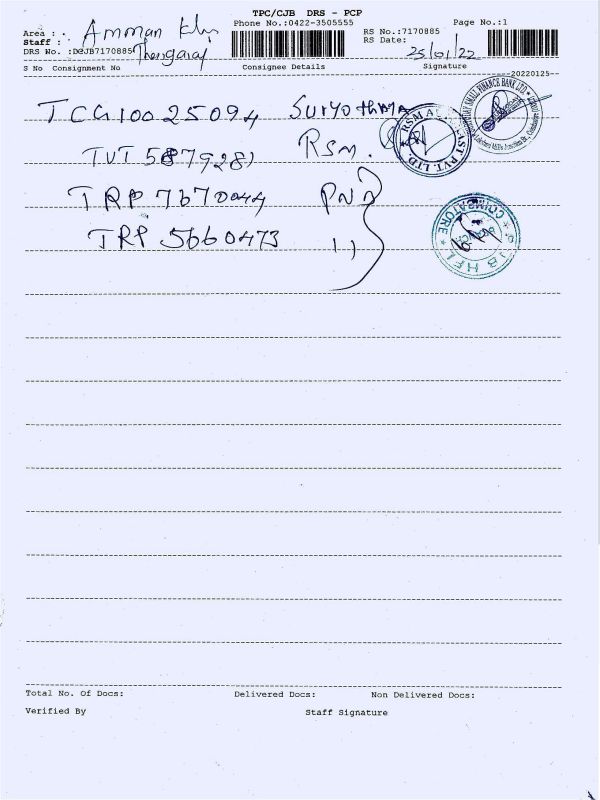 TPC/CJB DRS - PCP
Phone No.:0422-3505555
RS No.:7170885
Page No.:1
Area : Amman
Staff : Thangaraj
RS Date: 25/01/22
DRS No. :DCJB7170885
S No Consignment No Consignee Details Signature
20220125
TCG10025094 Suryothma
TUT 5879281 RSM.
TRP 7670044 PNB
TRP 5660473 11
RSM PVT. LTD.
SMALL FINANCE BANK LTD
COIMBATORE
HFL
Total No. Of Docs: Delivered Docs: Non Delivered Docs:
Verified By Staff Signature